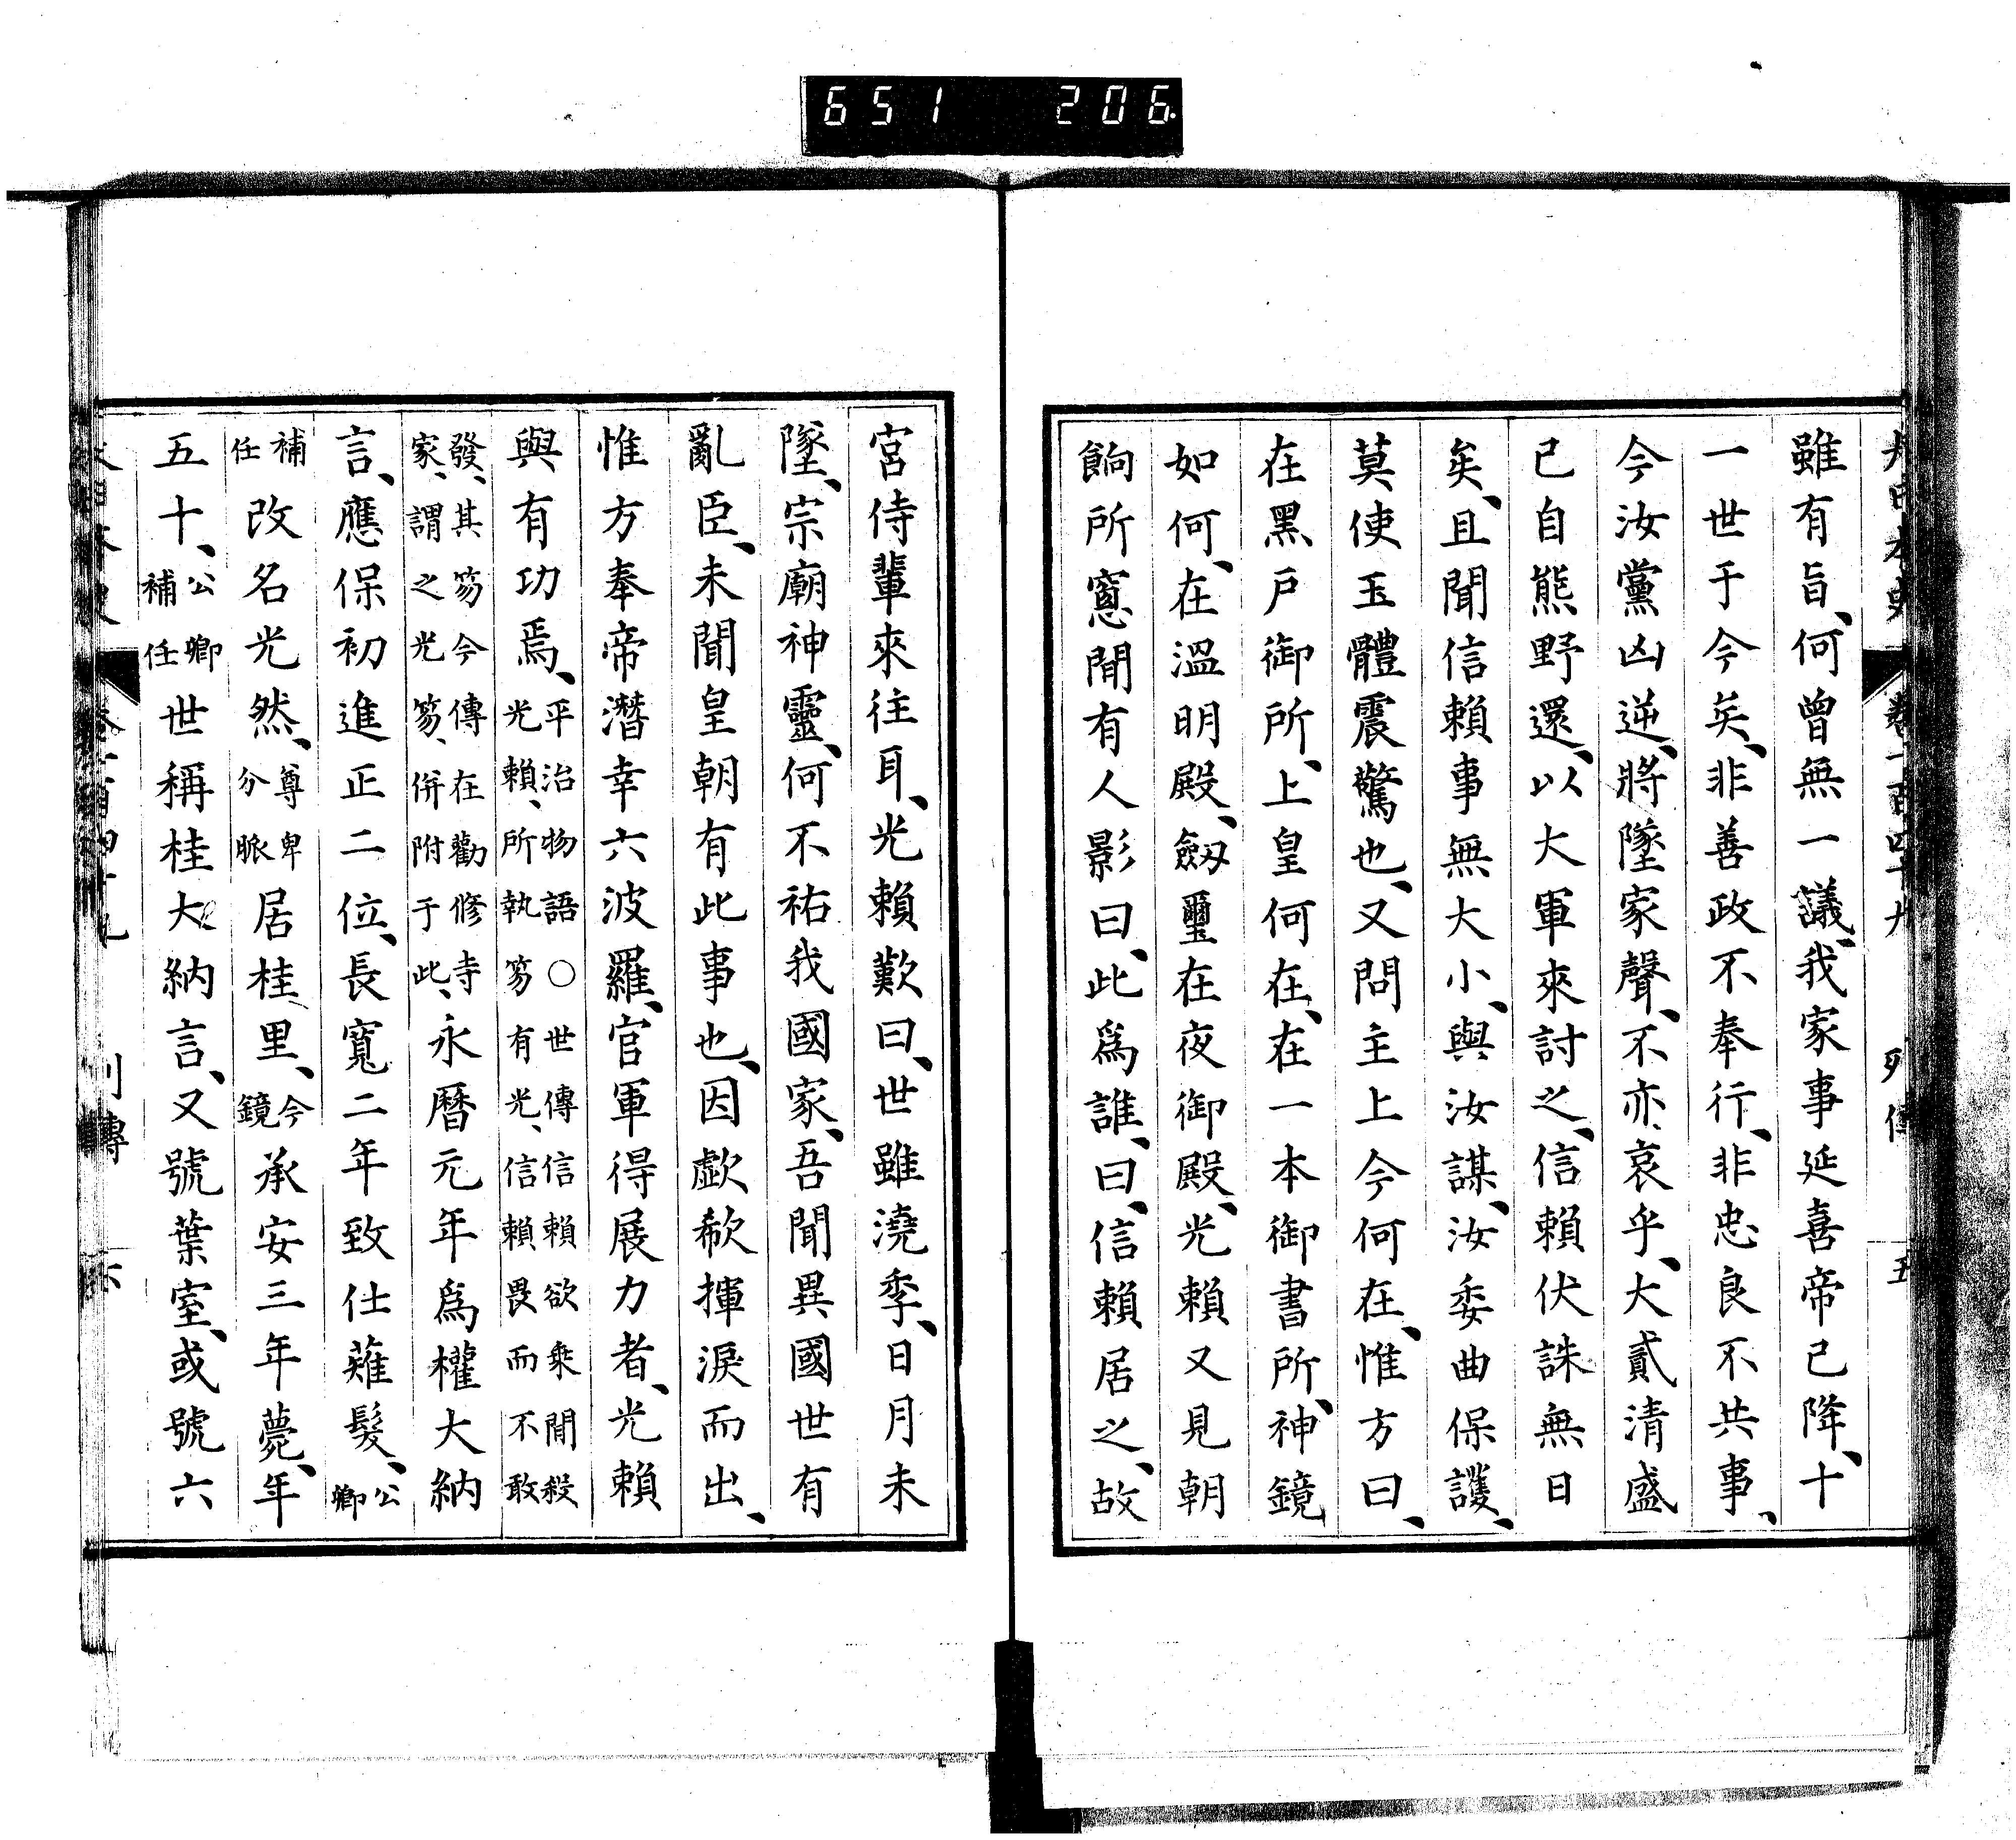 651 206
卷一百四十九 列傳 五
雖有旨、何曾無一議、我家事延喜帝已降、十
一世于今矣、非善政不奉行、非忠良不共事、
今汝黨凶逆、將墜家聲、不亦哀乎、大貳清盛
已自熊野還、以大軍來討之、信賴伏誅無日
矣、且聞信賴事無大小、與汝謀、汝委曲保護、
莫使玉體震驚也、又問主上今何在、惟方曰、
在黑戶御所、上皇何在、在一本御書所、神鏡
如何、在溫明殿、劔璽在夜御殿、光賴又見朝
餉所窻間有人影曰、此爲誰、曰、信賴居之、故
宮侍輩來往耳、光賴歎曰、世雖澆季、日月未
墜、宗廟神靈、何不祐我國家、吾聞異國世有
亂臣、未聞皇朝有此事也、因歔欷揮淚而出、
惟方奉帝潛幸六波羅、官軍得展力者、光賴
與有功焉、平治物語○世傳信賴欲乘間殺光賴、所執笏有光、信賴畏而不敢
發、其笏今傳、在勸修寺家、謂之光笏、併附于此、永曆元年爲權大納
言、應保初進正二位、長寬二年致仕薙髮、公卿
補任改名光然、尊卑分脈居桂里、今鏡承安三年薨、年
五十、公卿補任世稱桂大納言、又號葉室、或號六
列傳